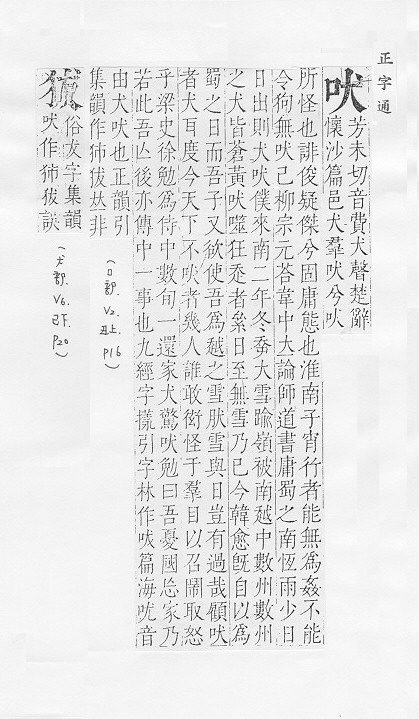 正字通
吠
芳未切音費犬聲楚辭
懷沙篇邑犬羣吠兮吠
所怪也誹俊疑傑兮固庸態也淮南子宵行者能無為姦不能
令狗無吠己柳宗元荅韋中大論師道書庸蜀之南恆雨少日
日出則犬吠僕來南二年冬大雪踰嶺被南越中數州數州
之犬皆蒼黃吠噬狂者絫日至無雪乃已今韓愈旣自以為
蜀之日而吾子又欲使吾為越之雪雪與日豈有過哉顧吠
者犬耳度今天下不吠者幾人誰敢衒怪于羣目以召鬧取怒
乎梁史徐勉為侍中數旬一還家犬驚吠勉曰吾憂國忘家乃
若此吾亾後亦傳中一事也九經字㨾引字林作篇海音
由犬吠也正韻引
集韻作非
(口部. V2. 丑上. P16)
俗犮字集韻
吠作誤
(犬部. V6. 巳下. P20)